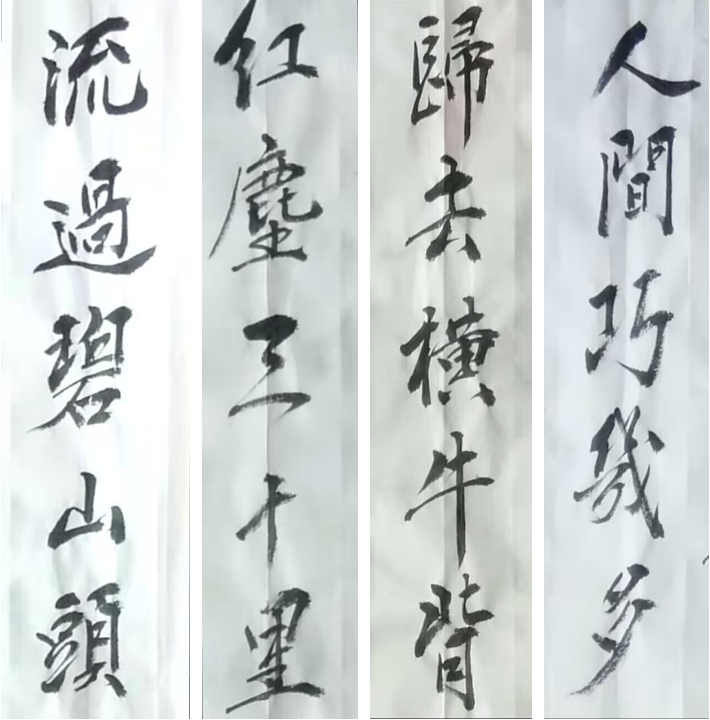 人間巧幾多
歸去橫牛背
紅塵三十里
流過碧山頭